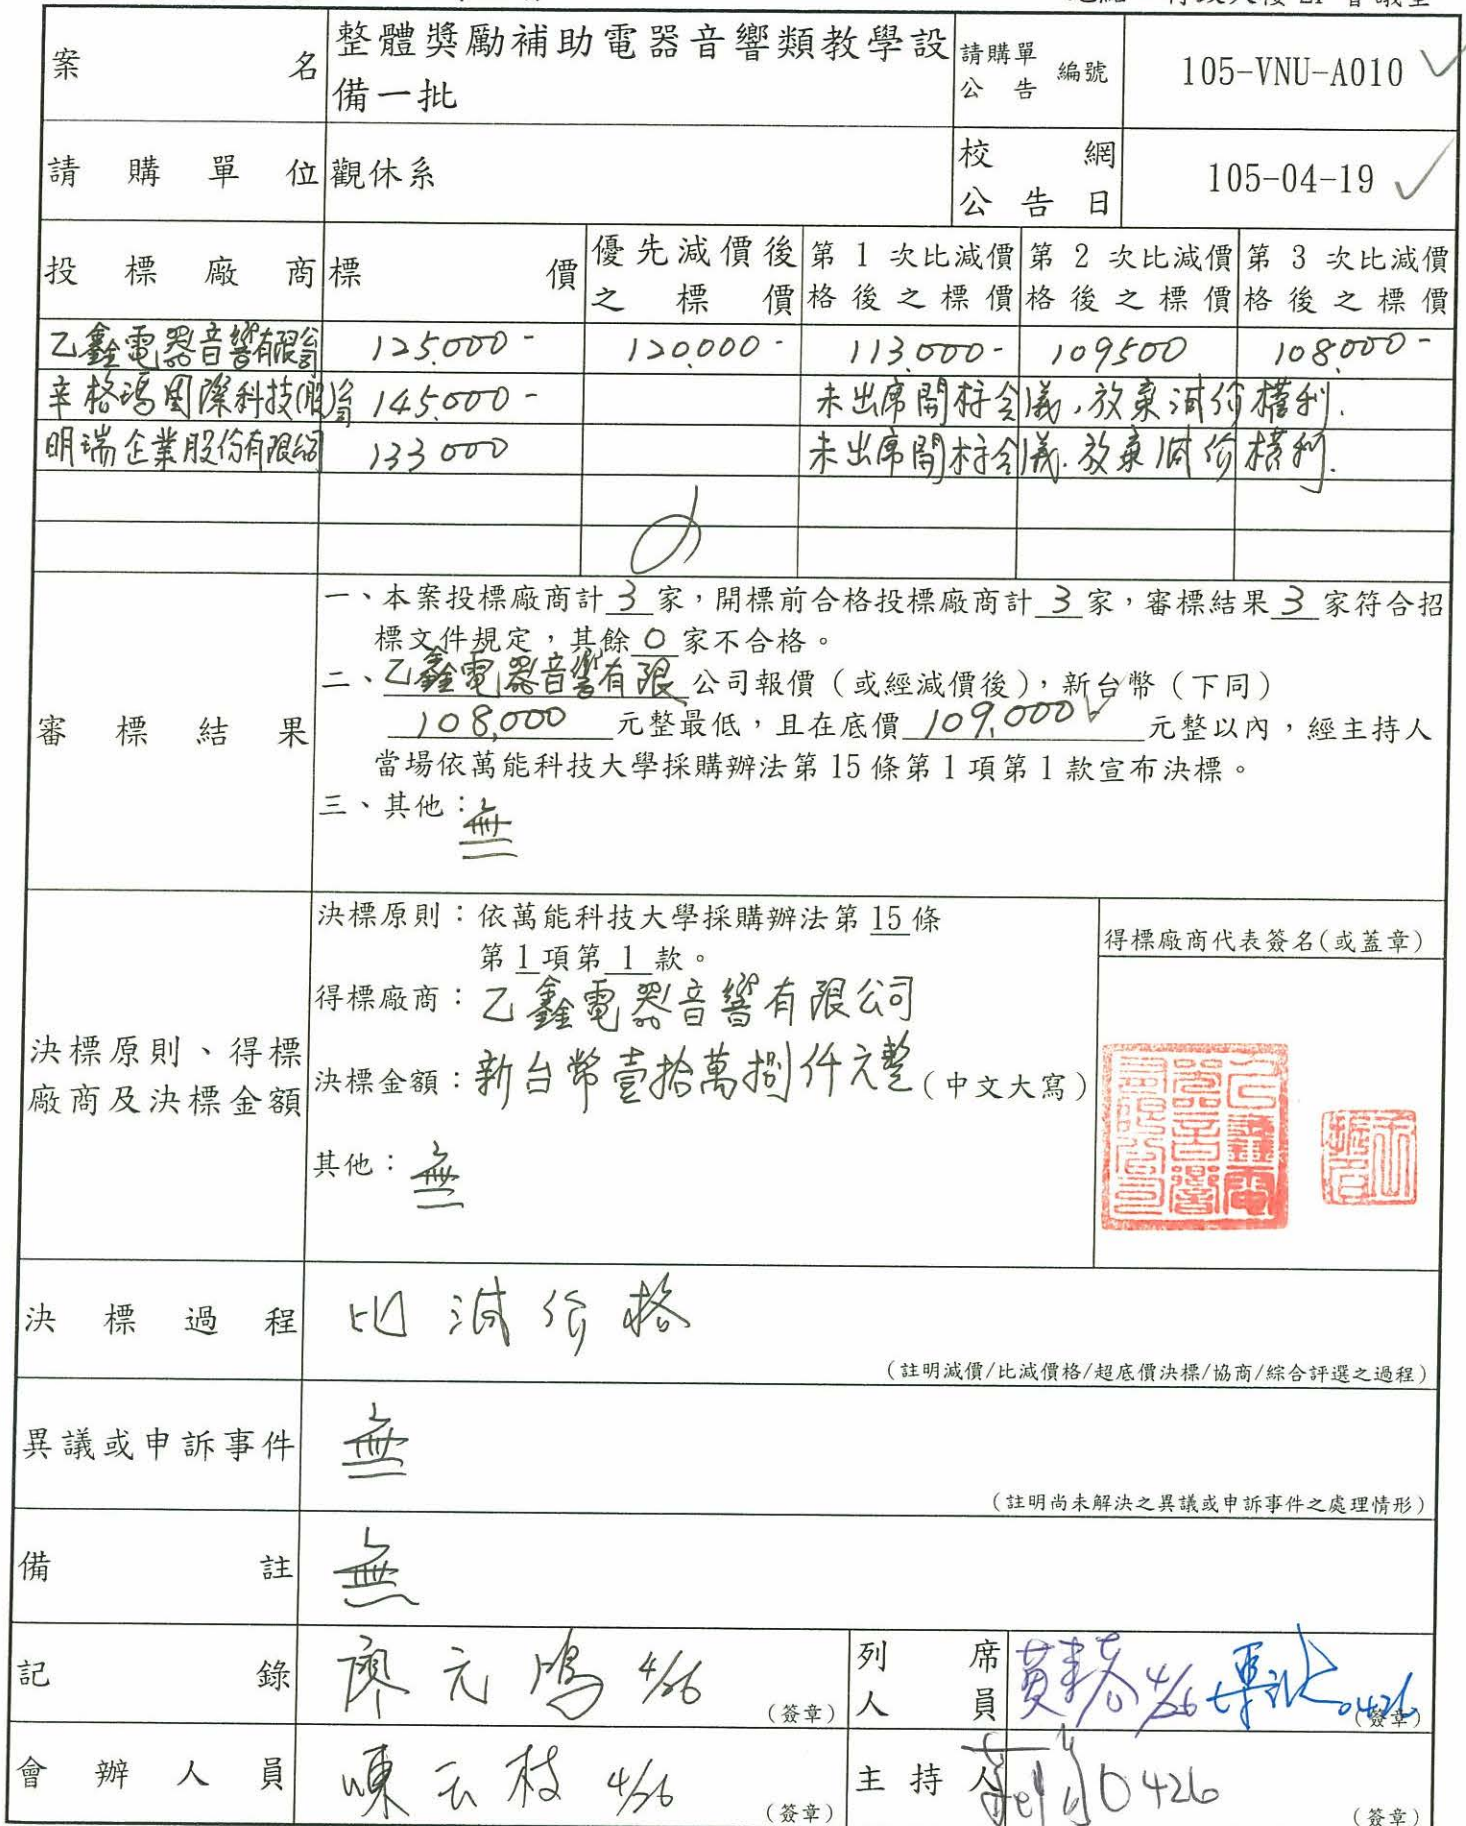 案名 整體獎勵補助電器音響類教學設備一批 請購單公告 編號 105-VNU-A010
請購單位 觀休系 校網公告日 105-04-19
投標廠商 標價 優先減價後之標價 第1次比減價格後之標價 第2次比減價格後之標價 第3次比減價格後之標價
乙鑫電器音響有限公司 125,000- 120,000- 113,000- 109500 108,000-
辛格瑪國際科技(股)公司 145,000- 未出席開标会議,放棄減价權利.
明瑞企業股份有限公司 133000 未出席開标会議.放棄減价權利.
審標結果
一、本案投標廠商計 3 家,開標前合格投標廠商計 3 家,審標結果 3 家符合招
標文件規定,其餘 0 家不合格。
二、乙鑫電器音響有限 公司報價(或經減價後),新台幣(下同)
108,000 元整最低,且在底價 109,000 元整以內,經主持人
當場依萬能科技大學採購辦法第 15 條第 1 項第 1 款宣布決標。
三、其他:無
決標原則、得標廠商及決標金額
決標原則:依萬能科技大學採購辦法第 15 條
第 1 項第 1 款。
得標廠商:乙鑫電器音響有限公司
決標金額:新台幣壹拾萬捌仟元整(中文大寫)
其他:無
得標廠商代表簽名(或蓋章)
決標過程 比減价格
(註明減價/比減價格/超底價決標/協商/綜合評選之過程)
異議或申訴事件 無
(註明尚未解決之異議或申訴事件之處理情形)
備註 無
記錄 廖元鴻 4/26 (簽章) 列席人員 4/26 0426 (簽章)
會辦人員 陳云枝 4/26 (簽章) 主持人 0426 (簽章)